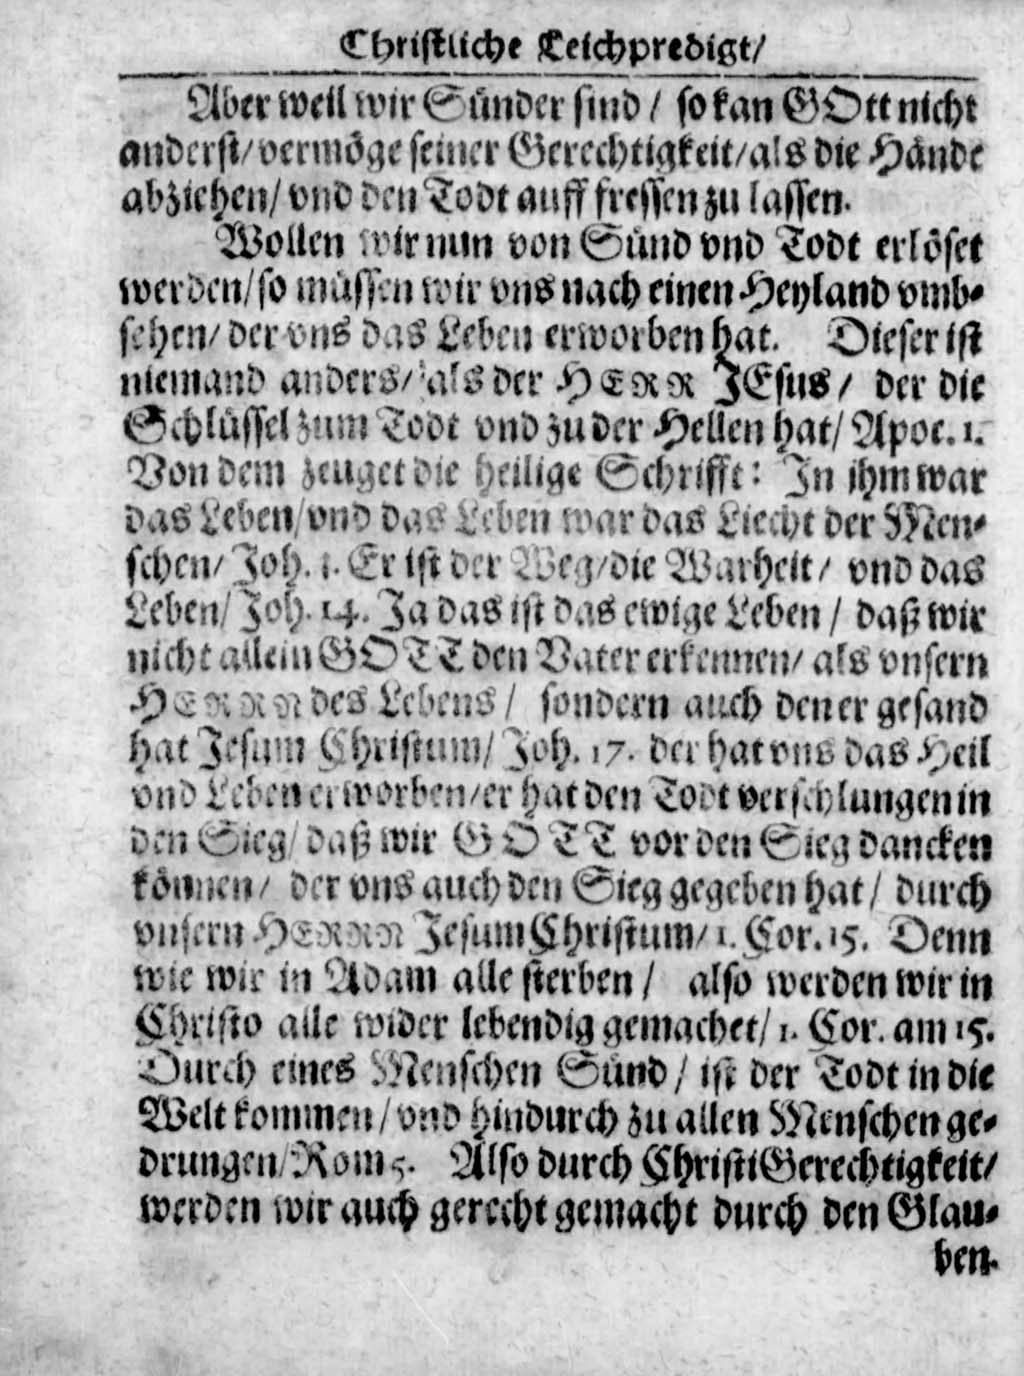 Christliche Leichpredigt/
Aber weil wir Sünder sind / so kan GOtt nicht
anderst/ vermöge seiner Gerechtigkeit/ als die Hände
abziehen/ vnd den Todt auff fressen zu lassen.
Wollen wir nun von Sünd vnd Todt erlöset
werden/ so müssen wir vns nach einen Heyland vmb-
sehen/ der vns das Leben erworben hat. Dieser ist
niemand anders/ als der HERR JEsus / der die
Schlüssel zum Todt vnd zu der Hellen hat/ Apoc. 1.
Von dem zeuget die heilige Schrifft: In ihm war
das Leben/ vnd das Leben war das Liecht der Men-
schen/ Joh. 1. Er ist der Weg/ die Warheit/ vnd das
Leben/ Joh. 14. Ja das ist das ewige Leben / daß wir
nicht allein GOTT den Vater erkennen/ als vnsern
HERRN des Lebens / sondern auch den er gesand
hat Jesum Christum/ Joh. 17. der hat vns das Heil
vnd Leben erworben/ er hat den Todt verschlungen in
den Sieg/ daß wir GOTT vor den Sieg dancken
können/ der vns auch den Sieg gegeben hat / durch
vnsern HERRN Jesum Christum/ 1. Cor. 15. Denn
wie wir in Adam alle sterben / also werden wir in
Christo alle wider lebendig gemachet/ 1. Cor. am 15.
Durch eines Menschen Sünd / ist der Todt in die
Welt kommen / vnd hindurch zu allen Menschen ge-
drungen/ Rom 5. Also durch Christi Gerechtigkeit/
werden wir auch gerecht gemacht durch den Glau-
ben.